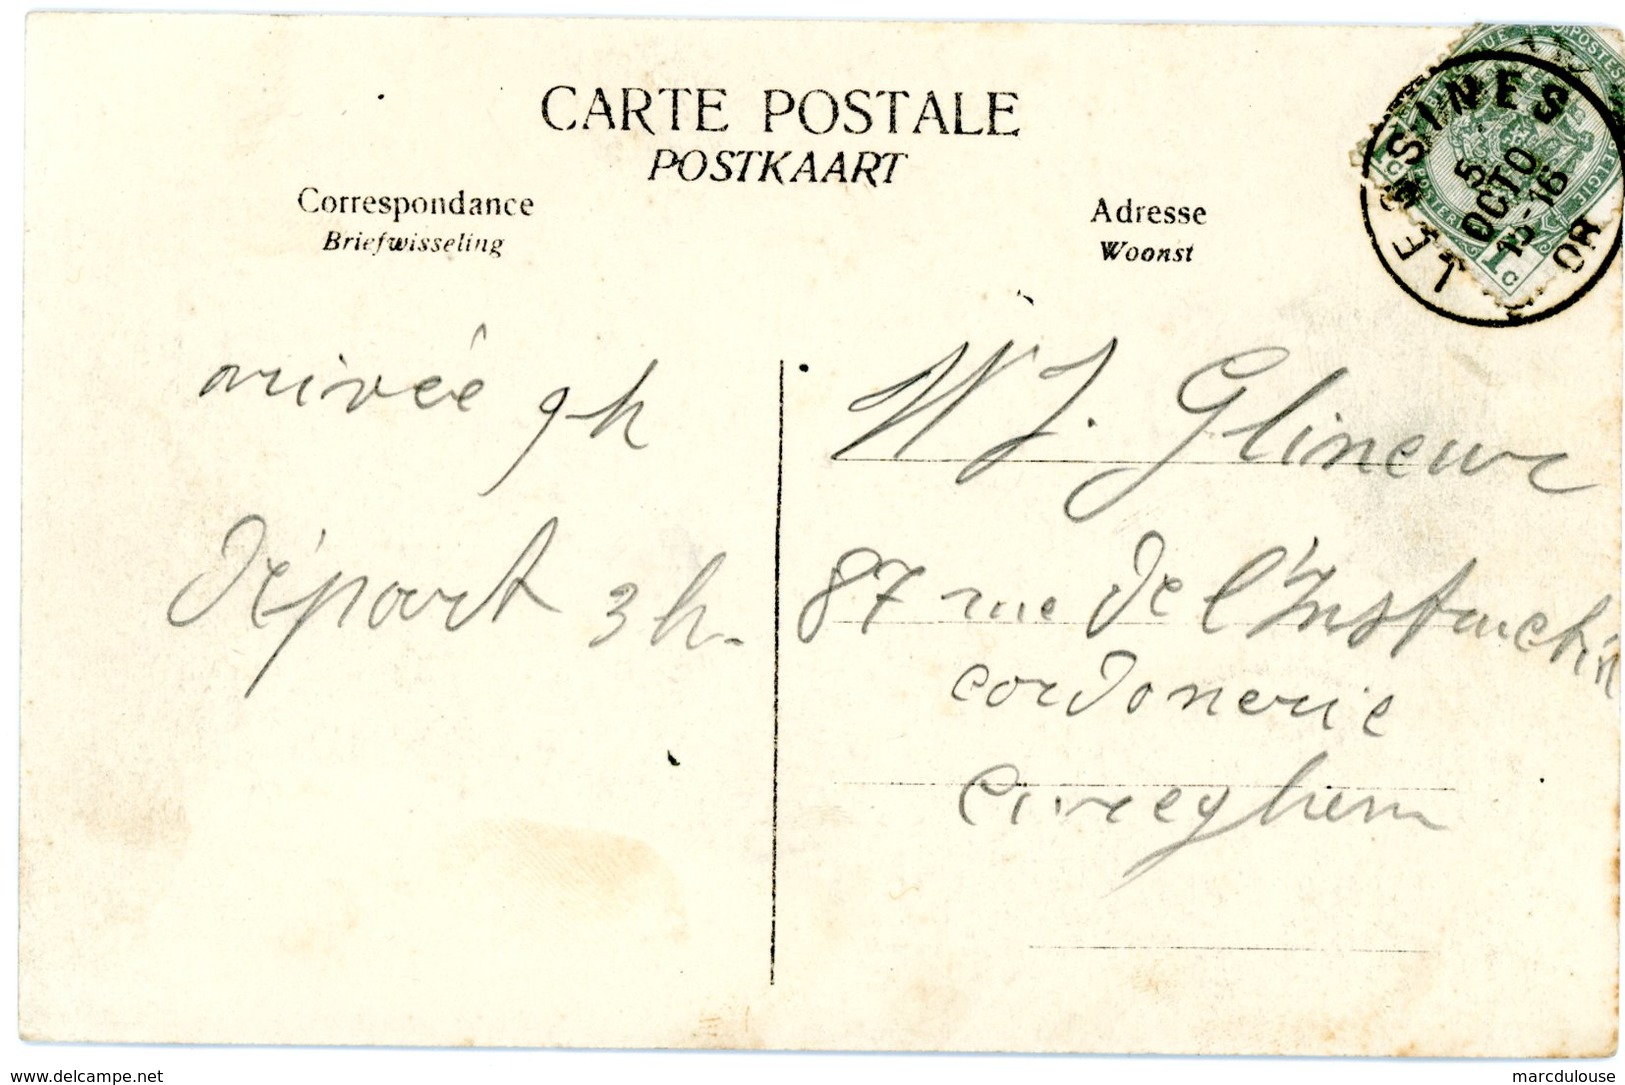 CARTE POSTALE
POSTKAART
Correspondance
Briefwisseling
Adresse
Woonst
LESSINES
5
OCTO
15-16
1c
arrivée 9h
Départ 3h.
J. Glineur
87 rue de l'Instruction
cordonerie
Cureghem
www.delcampe.net
marcdulouse